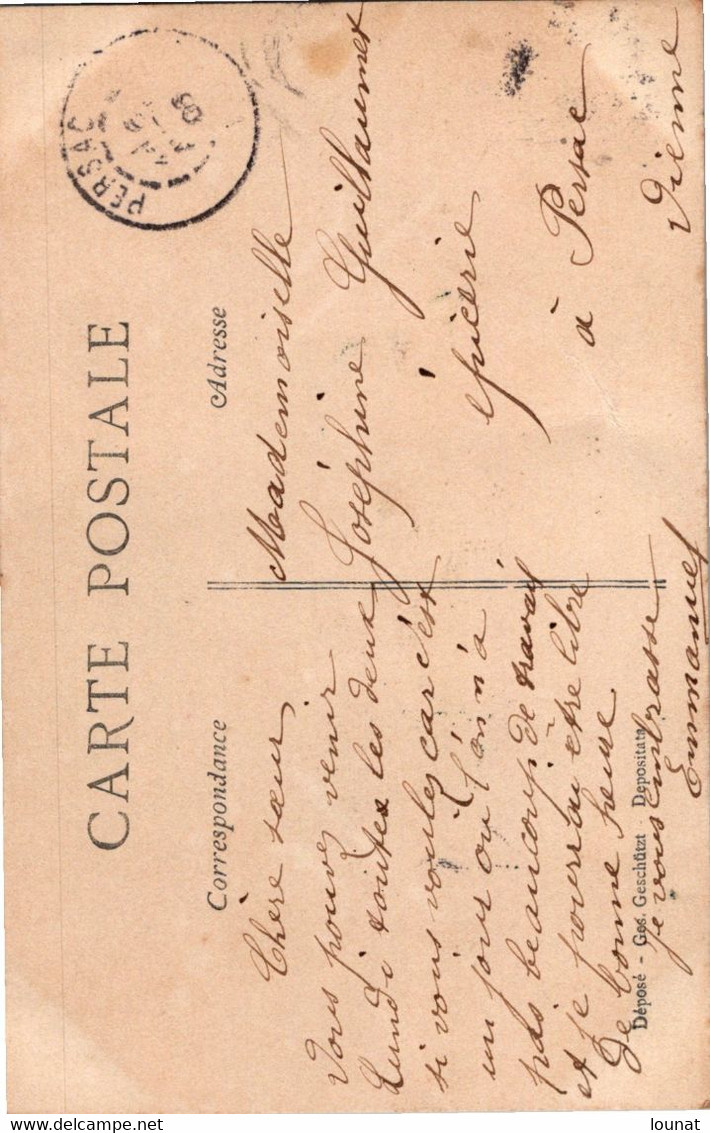 CARTE POSTALE
PERSAC
Correspondance
Chère sœur
Vous pouvez venir
Lundi toutes les deux
si vous voulez car c'est
un jour où l'on n'a
pas beaucoup de travail
et je pourrai etre libre
de bonne heure
je vous embrasse
Emmanuel
Adresse
Mademoiselle
Joséphine Guillaumet
épicerie
à Persac
Vienne
Déposé - Ges. Geschützt - Depositata
delcampe.net
lounat